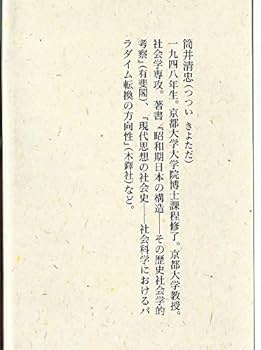 筒井清忠(つつい きよただ)
一九四八年生。京都大学大学院博士課程修了。京都大学教授。
社会学専攻。著書『昭和期日本の構造――その歴史社会学的
考察』(有斐閣)、『現代思想の社会史――社会科学におけるパ
ラダイム転換の方向性』(木鐸社)など。